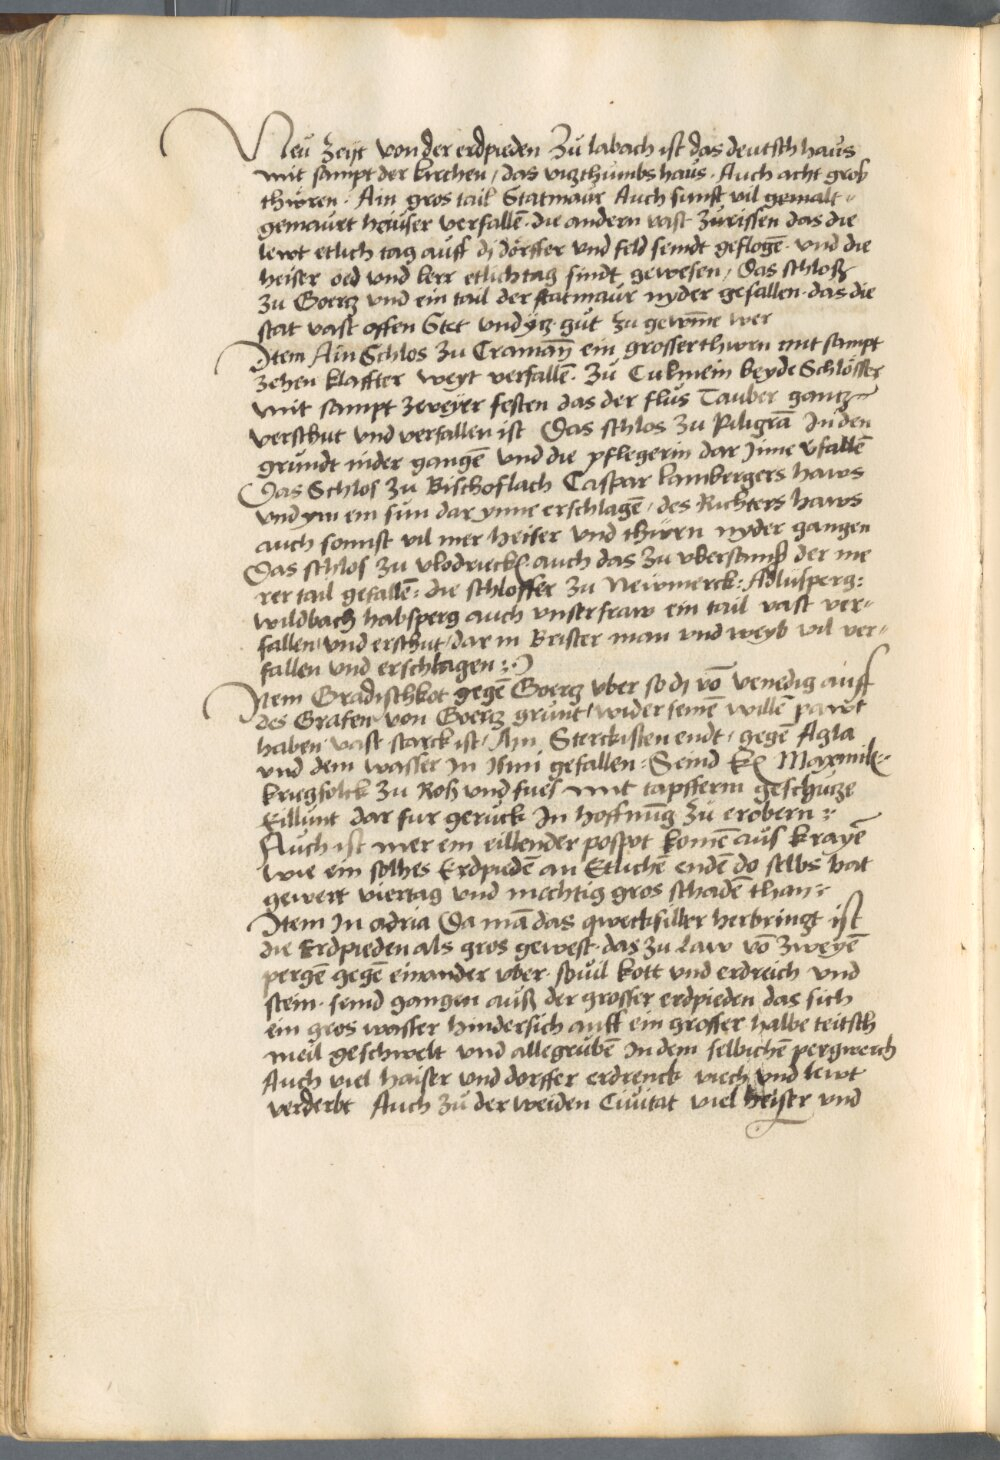 Neu zeyt von der erdpieden Zu labach ist das deutsch haus
mit sampt der kirchen / das vizthumbs haus · Auch acht groß
thüren · Ain gros tail Statmaur Auch sunst vil gemalt
gemaurt heuser verfallē · die andern vast zurissen das die
lewt etlich tag auff dj dörffer vnd feld seindt geflogē · vnd die
heiser oed vnd lerr etlich tag sindt gewesen / Das schloß
zu Goertz vnd ein tail der statmaur nyder gefallen · das die
stat vast offen Stet vnd ytz gut zu gewinē wer
Item Ain Schlos zu Cramañ ein grosser thurn mit sampt
zehen klaffter weyt verfallē · Zu Culmein beyde Schlösser
mit sampt zweyer festen das der flus Tauber gantz
verschut vnd verfallen ist Das schlos zu Piligrā In den
grundt nider gangē vnd die pflegerin dar Jnne v̄fallē
Das Schlos zu Bischoflach Caspar lambergers haws
vnd ym ein sun dar ynne erschlagē / des Richters haws
auch sonnst vil mer heiser vnd thürn nyder gangen
Das schlos zu vlodrieck auch das zu vberstain der me
rer tail gefallē : die schlosser zu Newmerck : Adlusperg :
wildbach habsperg auch vnser fraw ein tail vast ver-
fallen / vnd erschut / dar in Reister man vnd weyb vil ver-
fallen vnd erschlagen :·
Item Gradischkot gegē Goertz vber so dj vō venedig auff
des Grafen von Goertz grunt / wider seinē willē pawt
haben vast starck ist / Am Sterckisten endt / gegē Agla
vnd dem wasser In Isni gefallen : Seind K Maxmil
kriegsfolck zu Roß vnd fues mit tapfferm geschütze
Eillunt dar fur geruck In hoffnūg zu erobern :
Auch ist mer ein eillender pospot komē aus krayē
wie ein solhes Erdpiedē an Etlichē endē do selbs hat
gewert viertag vnd mechtig gros schadē than :
Item In adria Da mā das qwecksilber herbringt ist
die Erdpieden als gros gewest · das zu Law vō zweyē
pergē gegē einander vber · souil kott vnd erdreich vnd
stein · seind gangen auß der grosser erdpieden das sich
ein gros wasser hindersich auff ein grosser halbe teitsch
meil geschwelt vnd alle grubē In dem selbichē pergwerch
Auch viel haiser vnd dorffer erdrenck viech vnd lewt
verderbt Auch zu der weiden Ciuitat viel heiser vnd